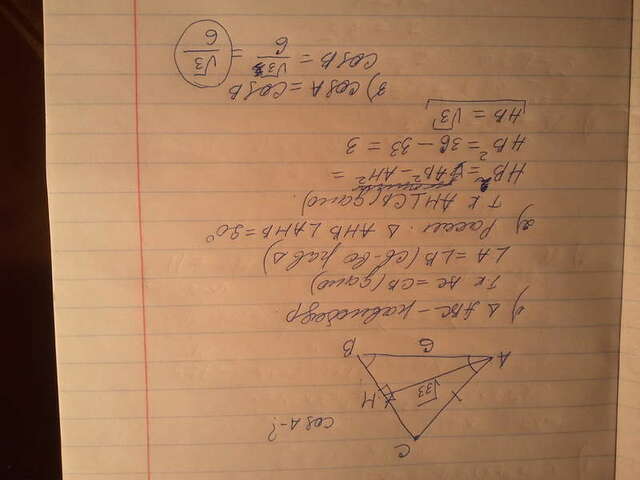 C
cos A - ?
H
√33
A
6
B
1) Δ ABC - равнобедр
т к AC = CB (дано)
∠A = ∠B (св-во равн Δ)
2) Рассм. Δ AHB ∠AHB = 90°
т к AH ⊥ CB (дано).
HB² = AB² - AH² =
HB² = 36 - 33 = 3
HB = √3
3) cos A = cos B
cos B = √3/6 = √3/6